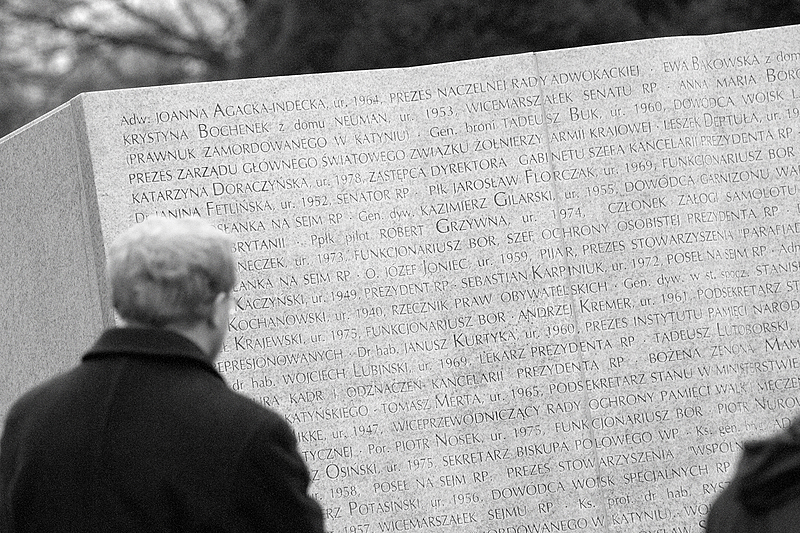 Adw. JOANNA AGACKA-INDECKA, ur. 1964, PREZES NACZELNEJ RADY ADWOKACKIEJ · EWA BĄKOWSKA z dom
KRYSTYNA BOCHENEK z domu NEUMAN, ur. 1953, WICEMARSZAŁEK SENATU RP · ANNA MARIA BORO
(PRAWNUK ZAMORDOWANEGO W KATYNIU) · Gen. broni TADEUSZ BUK, ur. 1960, DOWÓDCA WOJSK L
PREZES ZARZĄDU GŁÓWNEGO ŚWIATOWEGO ZWIĄZKU ŻOŁNIERZY ARMII KRAJOWEJ · LESZEK DEPTUŁA, ur. 19
KATARZYNA DORACZYŃSKA, ur. 1978, ZASTĘPCA DYREKTORA GABINETU SZEFA KANCELARII PREZYDENTA RP
JANINA FETLIŃSKA, ur. 1952, SENATOR RP · Płk JAROSŁAW FLORCZAK, ur. 1969, FUNKCJONARIUSZ BOR
ANKA NA SEJM RP · Gen. dyw. KAZIMIERZ GILARSKI, ur. 1955, DOWÓDCA GARNIZONU WA
BRYTANII · Ppłk pilot ROBERT GRZYWNA, ur. 1974, CZŁONEK ZAŁOGI SAMOLOTU
NECZEK, ur. 1973, FUNKCJONARIUSZ BOR, SZEF OCHRONY OSOBISTEJ PREZYDENTA RP
ANKA NA SEJM RP · O. JÓZEF JONIEC, ur. 1959, PIJAR, PREZES STOWARZYSZENIA "PARAFIAD
KACZYŃSKI, ur. 1949, PREZYDENT RP · SEBASTIAN KARPINIUK, ur. 1972, POSEŁ NA SEJM RP · Adm
KOCHANOWSKI, ur. 1940, RZECZNIK PRAW OBYWATELSKICH · Gen. dyw. w st. spocz. STANIS
KRAJEWSKI, ur. 1975, FUNKCJONARIUSZ BOR · ANDRZEJ KREMER, ur. 1961, PODSEKRETARZ ST
EPRESJONOWANYCH · Dr hab. JANUSZ KURTYKA, ur. 1960, PREZES INSTYTUTU PAMIĘCI NAROD
dr hab. WOJCIECH LUBIŃSKI, ur. 1969, LEKARZ PREZYDENTA RP · TADEUSZ LUTOBORSKI,
URA KADR I ODZNACZEŃ KANCELARII PREZYDENTA RP · BOŻENA ZENONA MAM
KATYŃSKIEGO · TOMASZ MERTA, ur. 1965, PODSEKRETARZ STANU W MINISTERSTWIE
IKKE, ur. 1947, WICEPRZEWODNICZĄCY RADY OCHRONY PAMIĘCI WALK I MĘCZEŃ
TYCZNEJ · Por. PIOTR NOSEK, ur. 1975, FUNKCJONARIUSZ BOR · PIOTR NUROW
OSIŃSKI, ur. 1975, SEKRETARZ BISKUPA POLOWEGO WP · Ks. gen.
1958, POSEŁ NA SEJM RP, PREZES STOWARZYSZENIA "WSPÓLN
ERZ POTASIŃSKI, ur. 1956, DOWÓDCA WOJSK SPECJALNYCH RP
1957, WICEMARSZAŁEK SEJMU RP · Ks. prof. dr hab. RYS
ORDOWANEGO W KATYNIU)